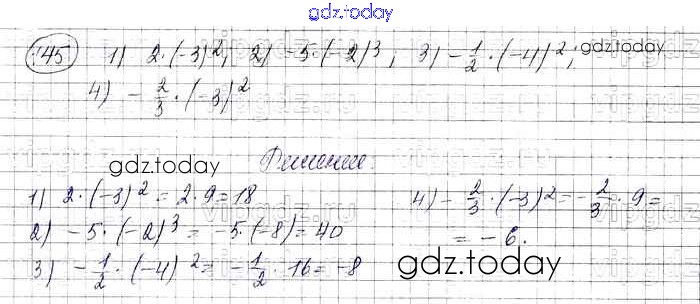 gdz.today
145 1) 2·(-3)², 2) -5·(-2)³; 3) -1/2·(-4)²; gdz.today
4) -2/3·(-3)²
gdz.today Решение.
1) 2·(-3)² = 2·9 = 18
2) -5·(-2)³ = -5·(-8) = 40
3) -1/2·(-4)² = -1/2·16 = -8
4) -2/3·(-3)² = -2/3·9 =
= -6.
gdz.today
vipgdz.ru